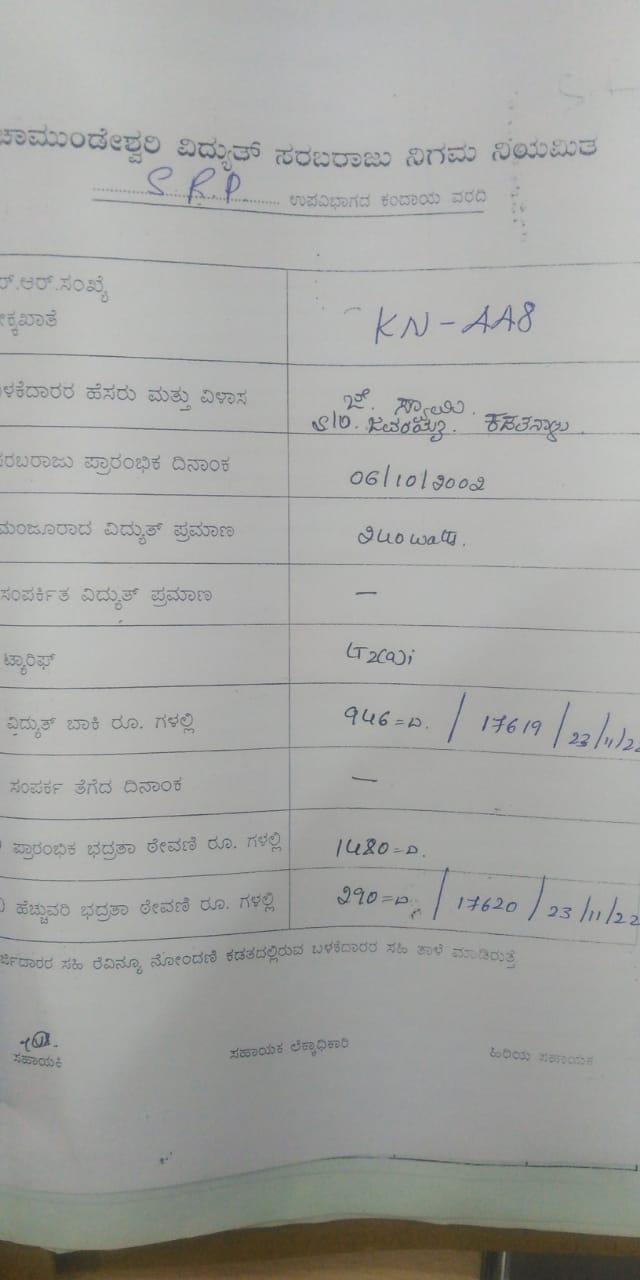 ಚಾಮುಂಡೇಶ್ವರಿ ವಿದ್ಯುತ್ ಸರಬರಾಜು ನಿಗಮ ನಿಯಮಿತ
S.R.P. ಉಪವಿಭಾಗದ ಕಂದಾಯ ವರದಿ
ರ್.ಆರ್.ಸಂಖ್ಯೆ
ಕ್ಕಖಾತೆ
KN-AA8
ಳಕೆದಾರರ ಹೆಸರು ಮತ್ತು ವಿಳಾಸ
ಜೆ. ಸ್ವಾಮಿ.
S/o.
ಸರಬರಾಜು ಪ್ರಾರಂಭಿಕ ದಿನಾಂಕ 06/10/2002
ಮಂಜೂರಾದ ವಿದ್ಯುತ್ ಪ್ರಮಾಣ 240 watts.
ಸಂಪರ್ಕಿತ ವಿದ್ಯುತ್ ಪ್ರಮಾಣ —
ಟ್ಯಾರಿಫ್ LT2(a)i
ವಿದ್ಯುತ್ ಬಾಕಿ ರೂ. ಗಳಲ್ಲಿ 946=00. / 17619 / 23/11/22
ಸಂಪರ್ಕ ತೆಗೆದ ದಿನಾಂಕ —
) ಪ್ರಾರಂಭಿಕ ಭದ್ರತಾ ಠೇವಣಿ ರೂ. ಗಳಲ್ಲಿ 1480=00.
) ಹೆಚ್ಚುವರಿ ಭದ್ರತಾ ಠೇವಣಿ ರೂ. ಗಳಲ್ಲಿ 290=00. / 17620 / 23/11/22
ರ್ಜಿದಾರರ ಸಹಿ ರೆವಿನ್ಯೂ ನೋಂದಣಿ ಕಡತದಲ್ಲಿರುವ ಬಳಕೆದಾರರ ಸಹಿ ತಾಳೆ ಮಾಡಿರುತ್ತೆ
ಸಹಾಯಕಿ ಸಹಾಯಕ ಲೆಕ್ಕಾಧಿಕಾರಿ ಹಿರಿಯ ಸಹಾಯಕ